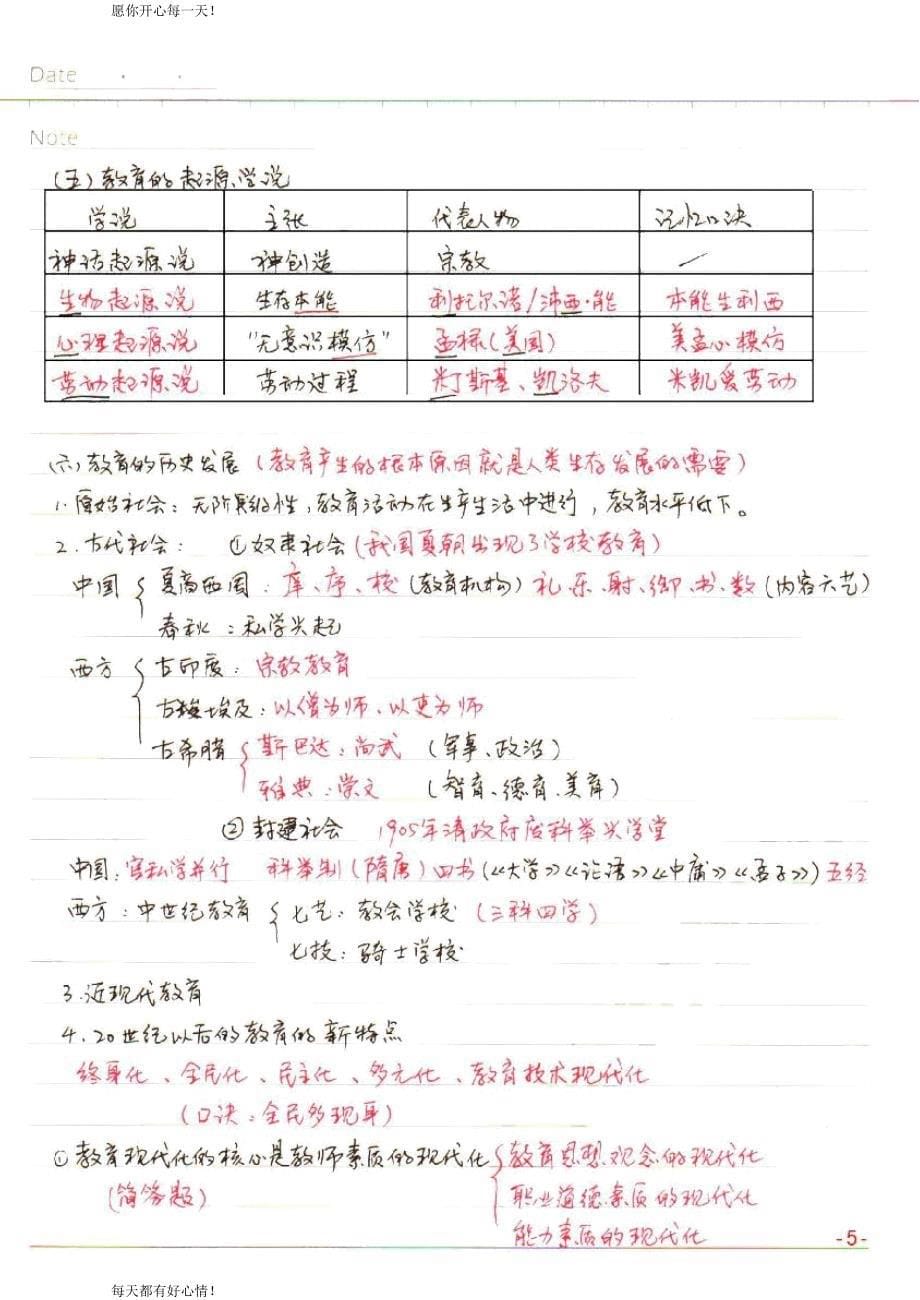 愿你开心每一天！
Date
Note
(五)教育的起源学说
学说 主张 代表人物 记忆口决
神话起源说 神创造 宗教 —
生物起源说 生存本能 利托尔诺/沛西·能 本能生利西
心理起源说 "无意识模仿" 孟禄(美国) 美孟心模仿
劳动起源说 劳动过程 米丁斯基、凯洛夫 米凯爱劳动
(六)教育的历史发展(教育产生的根本原因就是人类生存发展的需要)
1.原始社会：无阶级性,教育活动在生产生活中进行，教育水平低下。
2.古代社会： ①奴隶社会(我国夏朝出现了学校教育)
中国 夏商西周：庠、序、校(教育机构)礼、乐、射、御、书、数(内容六艺)
春秋：私学兴起
西方 古印度：宗教教育
古埃及：以僧为师、以吏为师
古希腊 斯巴达：尚武 (军事、政治)
雅典：崇文 (智育、德育、美育)
②封建社会 1905年清政府废科举兴学堂
中国：官私学并行 科举制(隋唐)四书(《大学》《论语》《中庸》《孟子》)五经
西方：中世纪教育 七艺：教会学校(三科四学)
七技：骑士学校
3.近现代教育
4.20世纪以后的教育的新特点
终身化、全民化、民主化、多元化、教育技术现代化
(口诀：全民多现身)
①教育现代化的核心是教师素质的现代化 教育思想观念的现代化
(简答题) 职业道德素质的现代化
能力素质的现代化
-5-
每天都有好心情！